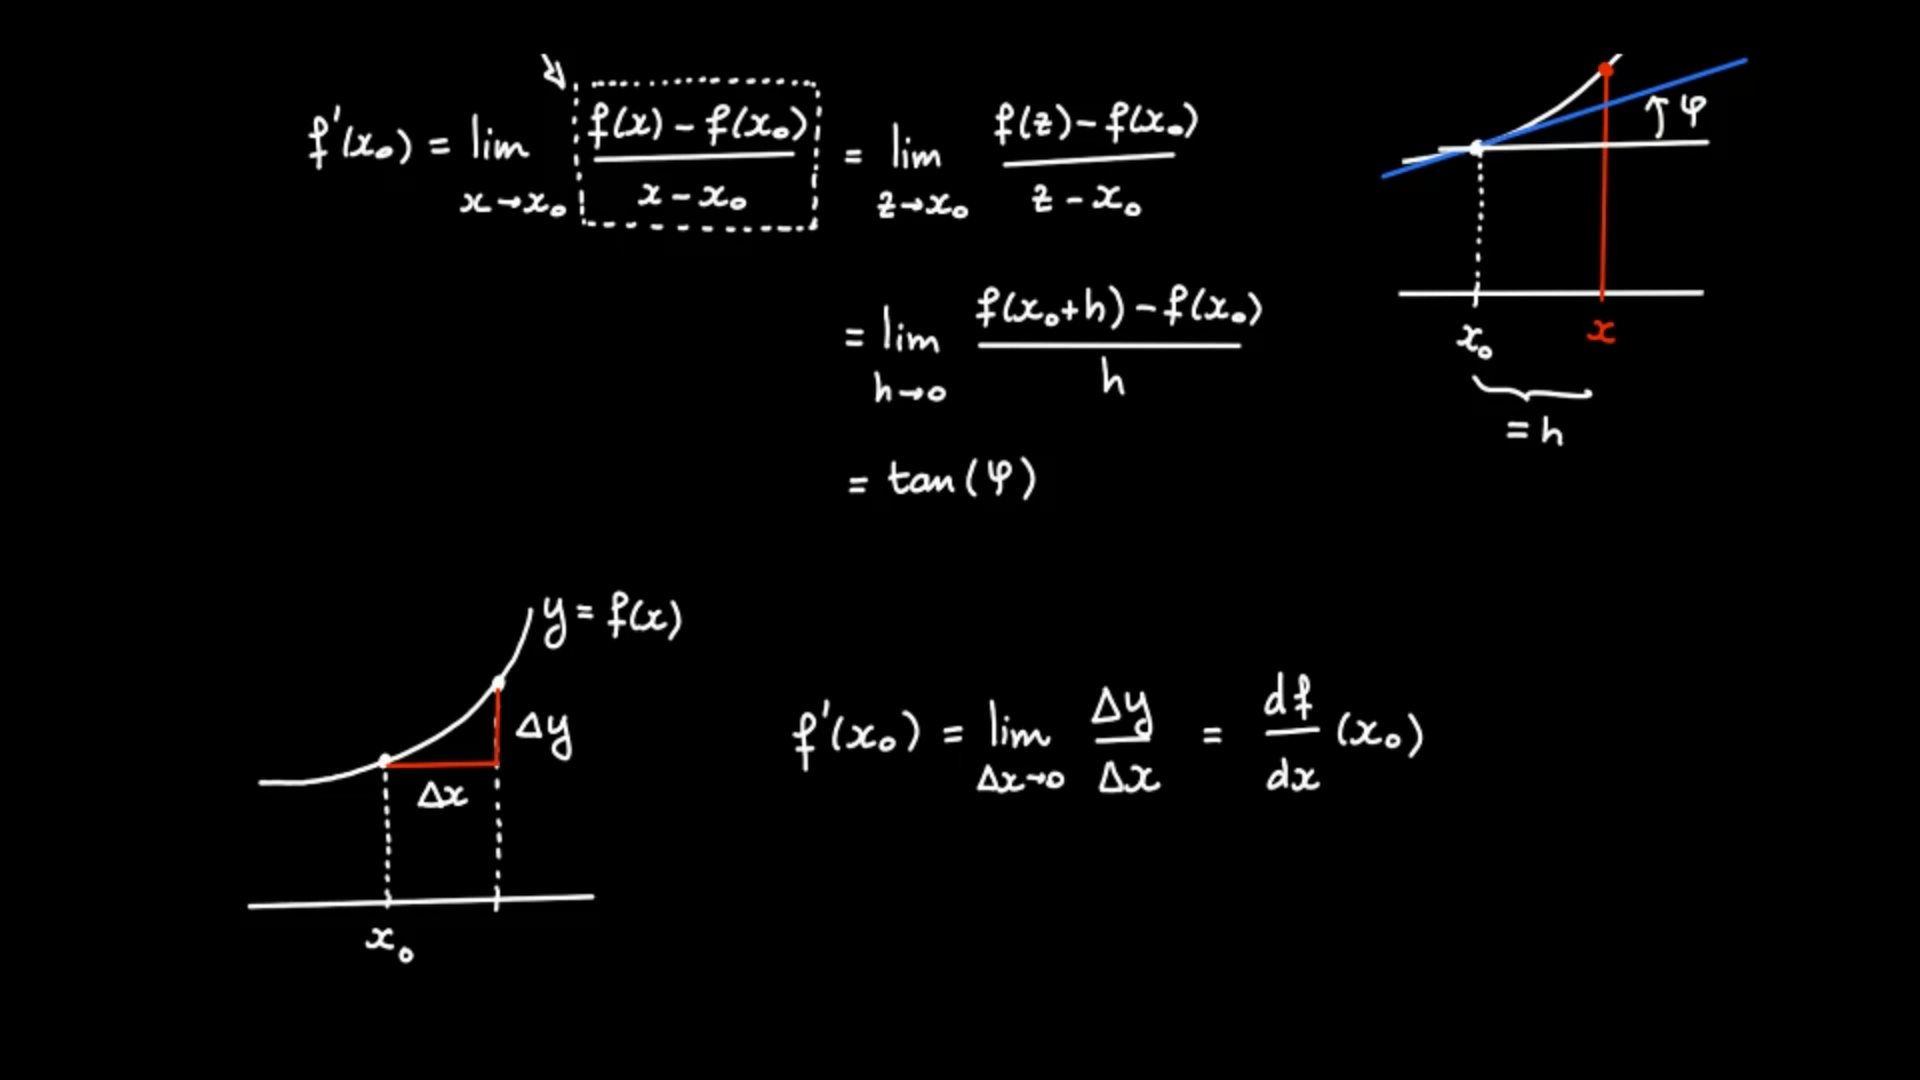 f'(x₀) = lim x→x₀ (f(x) - f(x₀))/(x - x₀) = lim z→x₀ (f(z) - f(x₀))/(z - x₀)
= lim h→0 (f(x₀+h) - f(x₀))/h
= tan(φ)
φ
x₀ x
= h
y = f(x)
Δy
Δx
x₀
f'(x₀) = lim Δx→0 Δy/Δx = df/dx (x₀)